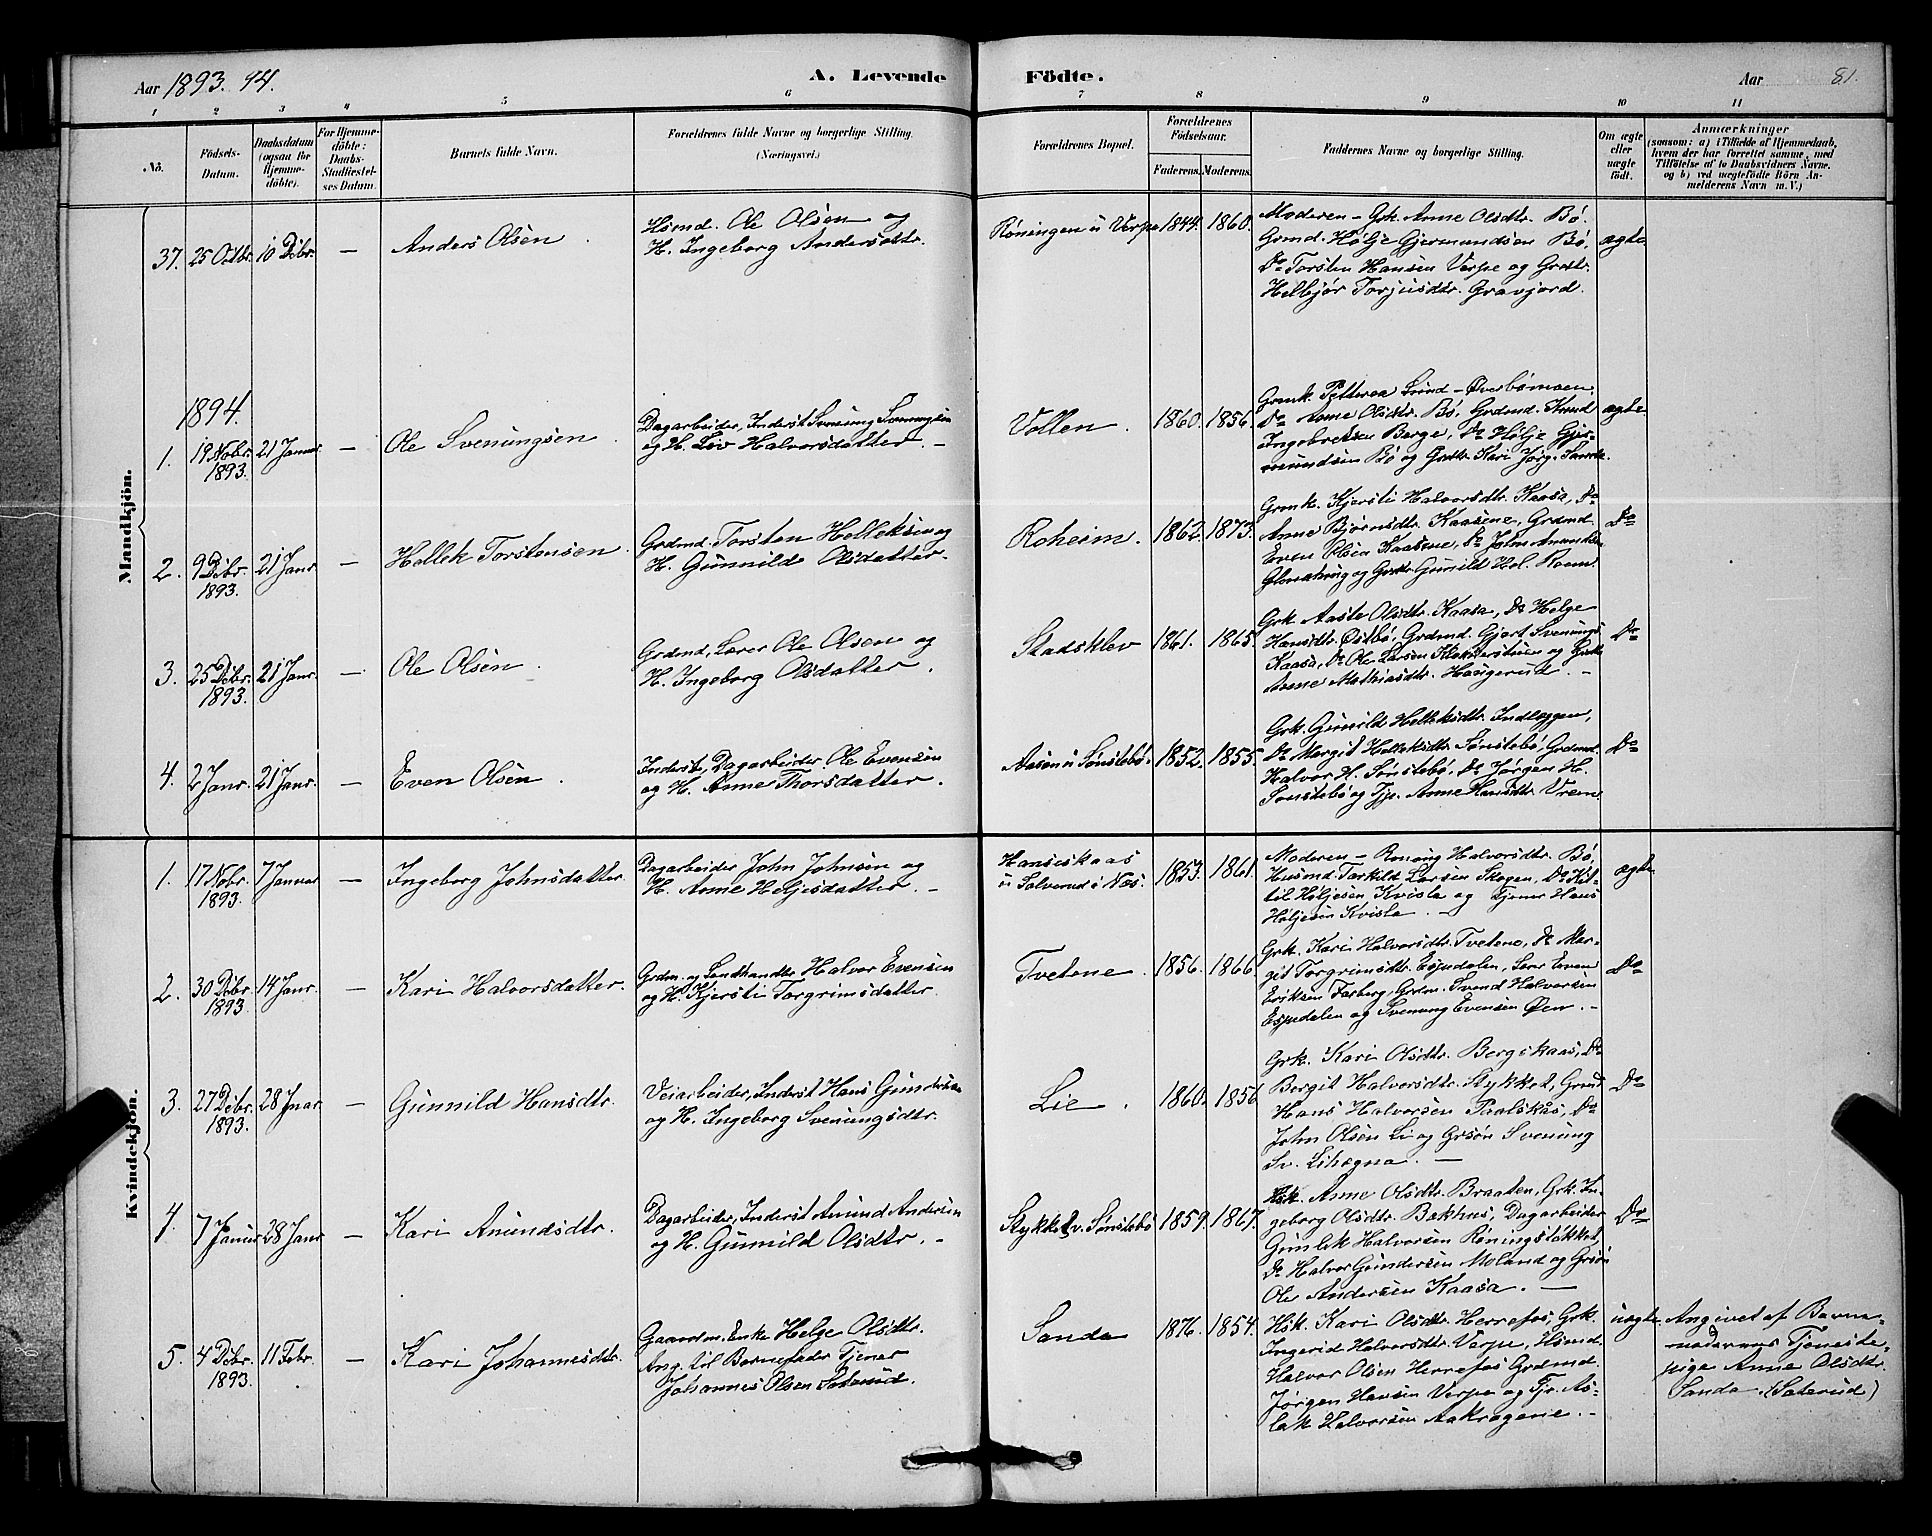 Aar 1893. 94.
A. Levende Födte.
Aar 81.
1 2 3 4 5 6 7 8 9 10 11
No.
Födsels-
Datum.
Daabsdatum
(ogsaa for
Hjemme-
döbte).
For Hjemme-
döbte:
Daabs-
Stadfæstel-
ses Datum.
Barnets fulde Navn.
Forældrenes fulde Navne og borgerlige Stilling.
(Næringsvei.)
Forældrenes Bopæl.
Forældrenes
Födselsaar.
Faderens. Moderens.
Faddernes Navne og borgerlige Stilling.
Om ægte
eller
uægte
födt.
Anmærkninger
(saasom: a) i Tilfælde af Hjemmedaab,
hvem der har forrettet samme, med
Tilföielse af to Daabsvidners Navne.
og b) ved uægtefödte Börn An-
melderens Navn m. V.)
Mandkjön.
37. 25 Octbr. 10 Dcbr. — Anders Olsen.
Hsmd. Ole Olsen og
H. Ingeborg Andersdtr.
Röningen u Verpe 1844. 1860.
Moderen – Grk. Anne Olsdtr. Bö.
Grmd. Hölje Gjermundsen Bö,
Do Torsten Hansen Verpe og Grdtr.
Helbjör Torjusdtr. Gravjord.
ægte
1894.
1. 19 Nobr. 1893. 21 Januar — Ole Svenungsen.
Dagarbeider, Inderst Svenung Svenungsen
og H. Liv Halvorsdatter. –
Vollen. 1860. 1856.
Lind – Överbömoen.
Do Anne Olsdtr. Bö, Grdmd. Knud
Ingebretsen Berge, Do Hölje Gjer-
mundsen Bö og Grdtr. Kari Jörg. Sande.
ægte
2. 9 Dcbr. 1893. 21 Janr. — Hellek Torstensen.
Grdmd. Torsten Helleksen og
H. Gunnild Olsdatter.
Roheim. 1862. 1873.
Grmk. Kjersti Halvorsdtr. Kaasa, Do
Anne Bjørnsdtr. Kaasene, Grdmd.
Even Olsen Kaasene, Do John
og Grdtr. Gunild Hel.
Do
3. 25 Dcbr. 1893. 21 Janr. — Ole Olsen.
Grdmd. Lærer Ole Olsen og
H. Ingeborg Olsdatter.
Stadsklev 1861. 1865.
Grk. Aaste Olsdtr. Kaasa, Do Helge
Hansdtr. Östbö, Grdmd. Gjert Svenungs.
Kaasa, Do Ole Larsen og Grdtr.
Anne Mathiasdtr. Haugerud. –
Do
4. 2 Janr. 21 Janr. — Even Olsen.
Inderste, Dagarbeider Ole Evensen
og H. Anne Thorsdatter.
Aasen u Sönstebö. 1852. 1855.
Grk. Gunild Helleksdtr. Indlæggen,
Do Margit Helleksdtr. Sönstebö, Grdmd.
Halvor H. Sönstebö, Do Jörgen H.
Sönstebö og Tjp. Anne Hansdtr. Vreim.
Do
Kvindekjön.
1. 17 Nobr. 1893. 7 Januar — Ingeborg Johnsdatter.
Dagarbeider John Johnsen og
H. Anne Höljesdatter. –
Hanseskaas
u Solverud i Næs. 1853. 1861.
Moderen – Ronoug Halvorsdtr. Bö,
Husmd. Tarkild Larsen Skogen, Do Ket-
til Höljesen Kvisla og Tjener Hans
Höljesen Kvisla. –
ægte
2. 30 Dcbr. 1893. 14 Janr. — Kari Halvorsdatter.
Grdm. og Landhandlr. Halvor Evensen
og H. Kjersti Torgrimsdatter.
Tvetene. 1856. 1866.
Grk. Kari Halvorsdtr. Tvetene, Do Mar-
git Torgrimsdtr. Espedalen, Lærer Even
Eriksen Farberg, Grdm. Svend Halvorsen
Espedalen og Svenung Evensen Öen. –
Do
3. 27 Dcbr. 1893. 28 Jnar — Gunnild Hansdtr.
Veiarbeider, Inderst Hans Gundersen
og H. Ingeborg Svenungsdtr.
Lie. 1860. 1856
Grk. Kari Olsdtr. Bergskaas, Do
Bergit Halvorsdtr. Stykket, Grmd
Hans Halvorsen Paalskås, Do
John Olsen Li og Grsön Svenung
Sv. Lihægna. —
Do
4. 7 Januar 28 Janr — Kari Anundsdtr.
Dagarbeider, Inderst Anund Andersen
og H. Gunnild Olsdtr. –
Stykket v. Sönstebö 1859. 1867.
Hsk. Anne Olsdtr. Braaten, Grk. In-
geborg Olsdtr. Bakhus, Dagarbeider
Gunlek Halvorsen Roningstokket,
Do Halvor Gundersen Moland og Grsön
Ole Andersen Kaasa. —
Do
5. 4 Dcbr. 1893. 11 Febr. — Kari Johannesdtr.
Gaardm. Enke Helge Olsdtr.
Ang. til Barnefader Tjener
Johannes Olsen Saterud.
Sanda 1876. 1854.
Hsk. Kari Olsdtr. Herrefos, Grk.
Ingerid Halvorsdtr. Verpe, Hsmd.
Halvor Olsen Herrefos Grdmd.
Jörgen Hansen Verpe og Tjr. As-
lak Halvorsen Aakragene. –
uægte
Angivet af Barne-
moderens Tjeneste-
pige Anne Olsdtr.
Sanda. (Saterud)